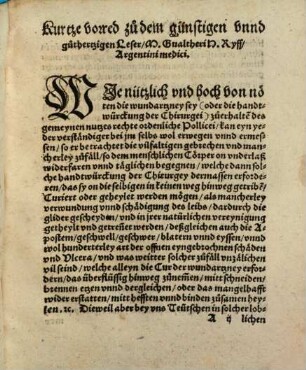 Kurtze vorred zů dem günstigen vnnd
gůthertzigen Leser/ M. Gualtheri H. Ryff/
Argentini medici.
WIe nützlich vnd hoch von nö
ten die wundartzney sey (oder die handt-
würckung der Chirurgei) zůerhaltē des
gemeynen nutzes rechte ordenliche Pollicei/ kan eyn ye
der verständiger bei jm selbs wol erwegen vnnd ermes-
sen/ so er betrachtet die vilfaltigen gebrechen vnd man-
cherley zůfäll/ so dem menschlichen Cörper on vnderlaß
widerfaren vnnd täglichen begegnen/ welche dann sol-
che handtwürckung der Chirurgey dermassen erforde-
ren/ das sy on die selbigen in keinen weg hinweg getribē/
Curiert oder geheylet werden mögen/ als mancherley
verwundung vnnd schädigung des leibs/ dardurch die
glider gescheyden/ vnd in jrer natürlichen vereynigung
geteylt vnd getrennet werden/ deßgleichen auch die A-
postem/ geschwell/ geschwer/ blatern vnnd eyssen/ vnd
wol hunderterley art der offnen eyngebrochnen schäden
vnd Vlcera/ vnd was weitter solcher zůfäll vnzälichen
vil seind/ welche alleyn die Cur der wundartzney erfor-
dern/ das überflüssig hinweg zůnemen/ mit schneiden/
brennen etzen vnnd dergleichen/ oder das mangelhafft
wider erstatten/ mit hefften vnnd binden zůsamen hey-
len. ꝛc. Dieweil aber bey vns Teütschen in solcher lob-
A ij lichen